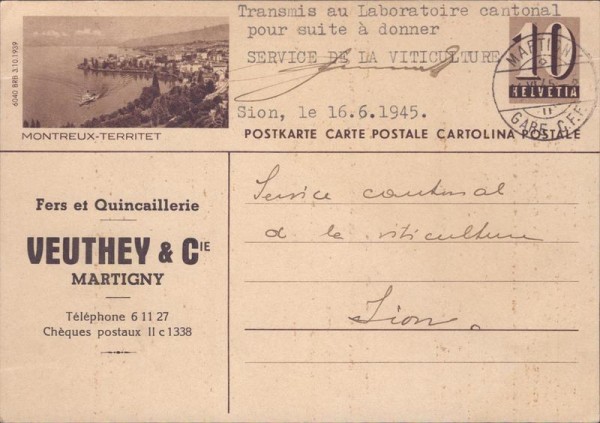 Transmis au Laboratoire cantonal
pour suite à donner
SERVICE DE LA VITICULTURE
Sion, le 16.6.1945.
6040 BRB 3.10.1939
MONTREUX-TERRITET
10
HELVETIA
MARTIGNY
GARE C.F.F.
POSTKARTE CARTE POSTALE CARTOLINA POSTALE
Fers et Quincaillerie
VEUTHEY & CIE
MARTIGNY
Téléphone 6 11 27
Chèques postaux II c 1338
Service cantonal
de la viticulture
Sion.